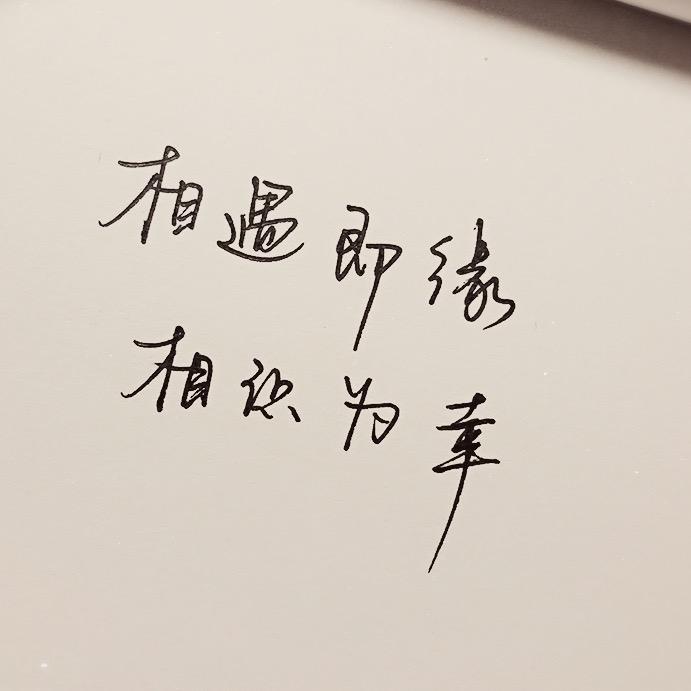 相遇即缘
相识为幸